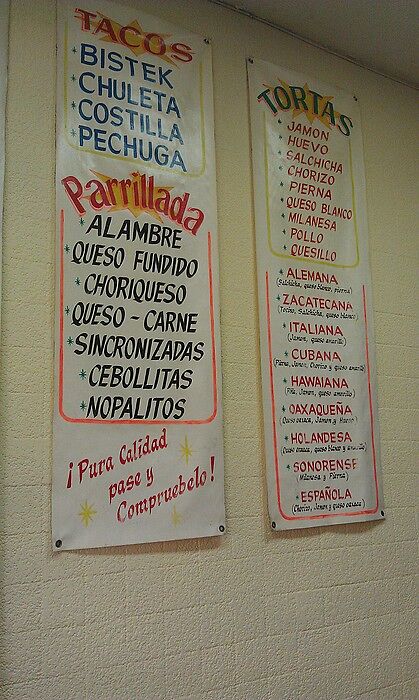 TACOS
* BISTEK
* CHULETA
* COSTILLA
* PECHUGA
Parrillada
* ALAMBRE
* QUESO FUNDIDO
* CHORIQUESO
* QUESO - CARNE
* SINCRONIZADAS
* CEBOLLITAS
* NOPALITOS
¡Pura Calidad
pase y
Compruebelo!
TORTAS
* JAMON
* HUEVO
* SALCHICHA
* CHORIZO
* PIERNA
* QUESO BLANCO
* MILANESA
* POLLO
* QUESILLO
* ALEMANA
(Salchicha, queso blanco, pierna)
* ZACATECANA
(Tocino, Salchicha, queso blanco)
* ITALIANA
(Jamon, queso amarillo)
* CUBANA
(Pierna, Jamon, Chorizo y queso amarillo)
* HAWAIANA
(Piña, Jamon, queso amarillo)
* OAXAQUEÑA
(Queso oaxaca, Jamon y Huevo)
* HOLANDESA
(Queso oaxaca, queso blanco y amarillo)
* SONORENSE
(Milanesa y Pierna)
* ESPAÑOLA
(Chorizo, Jamon y queso oaxaca)